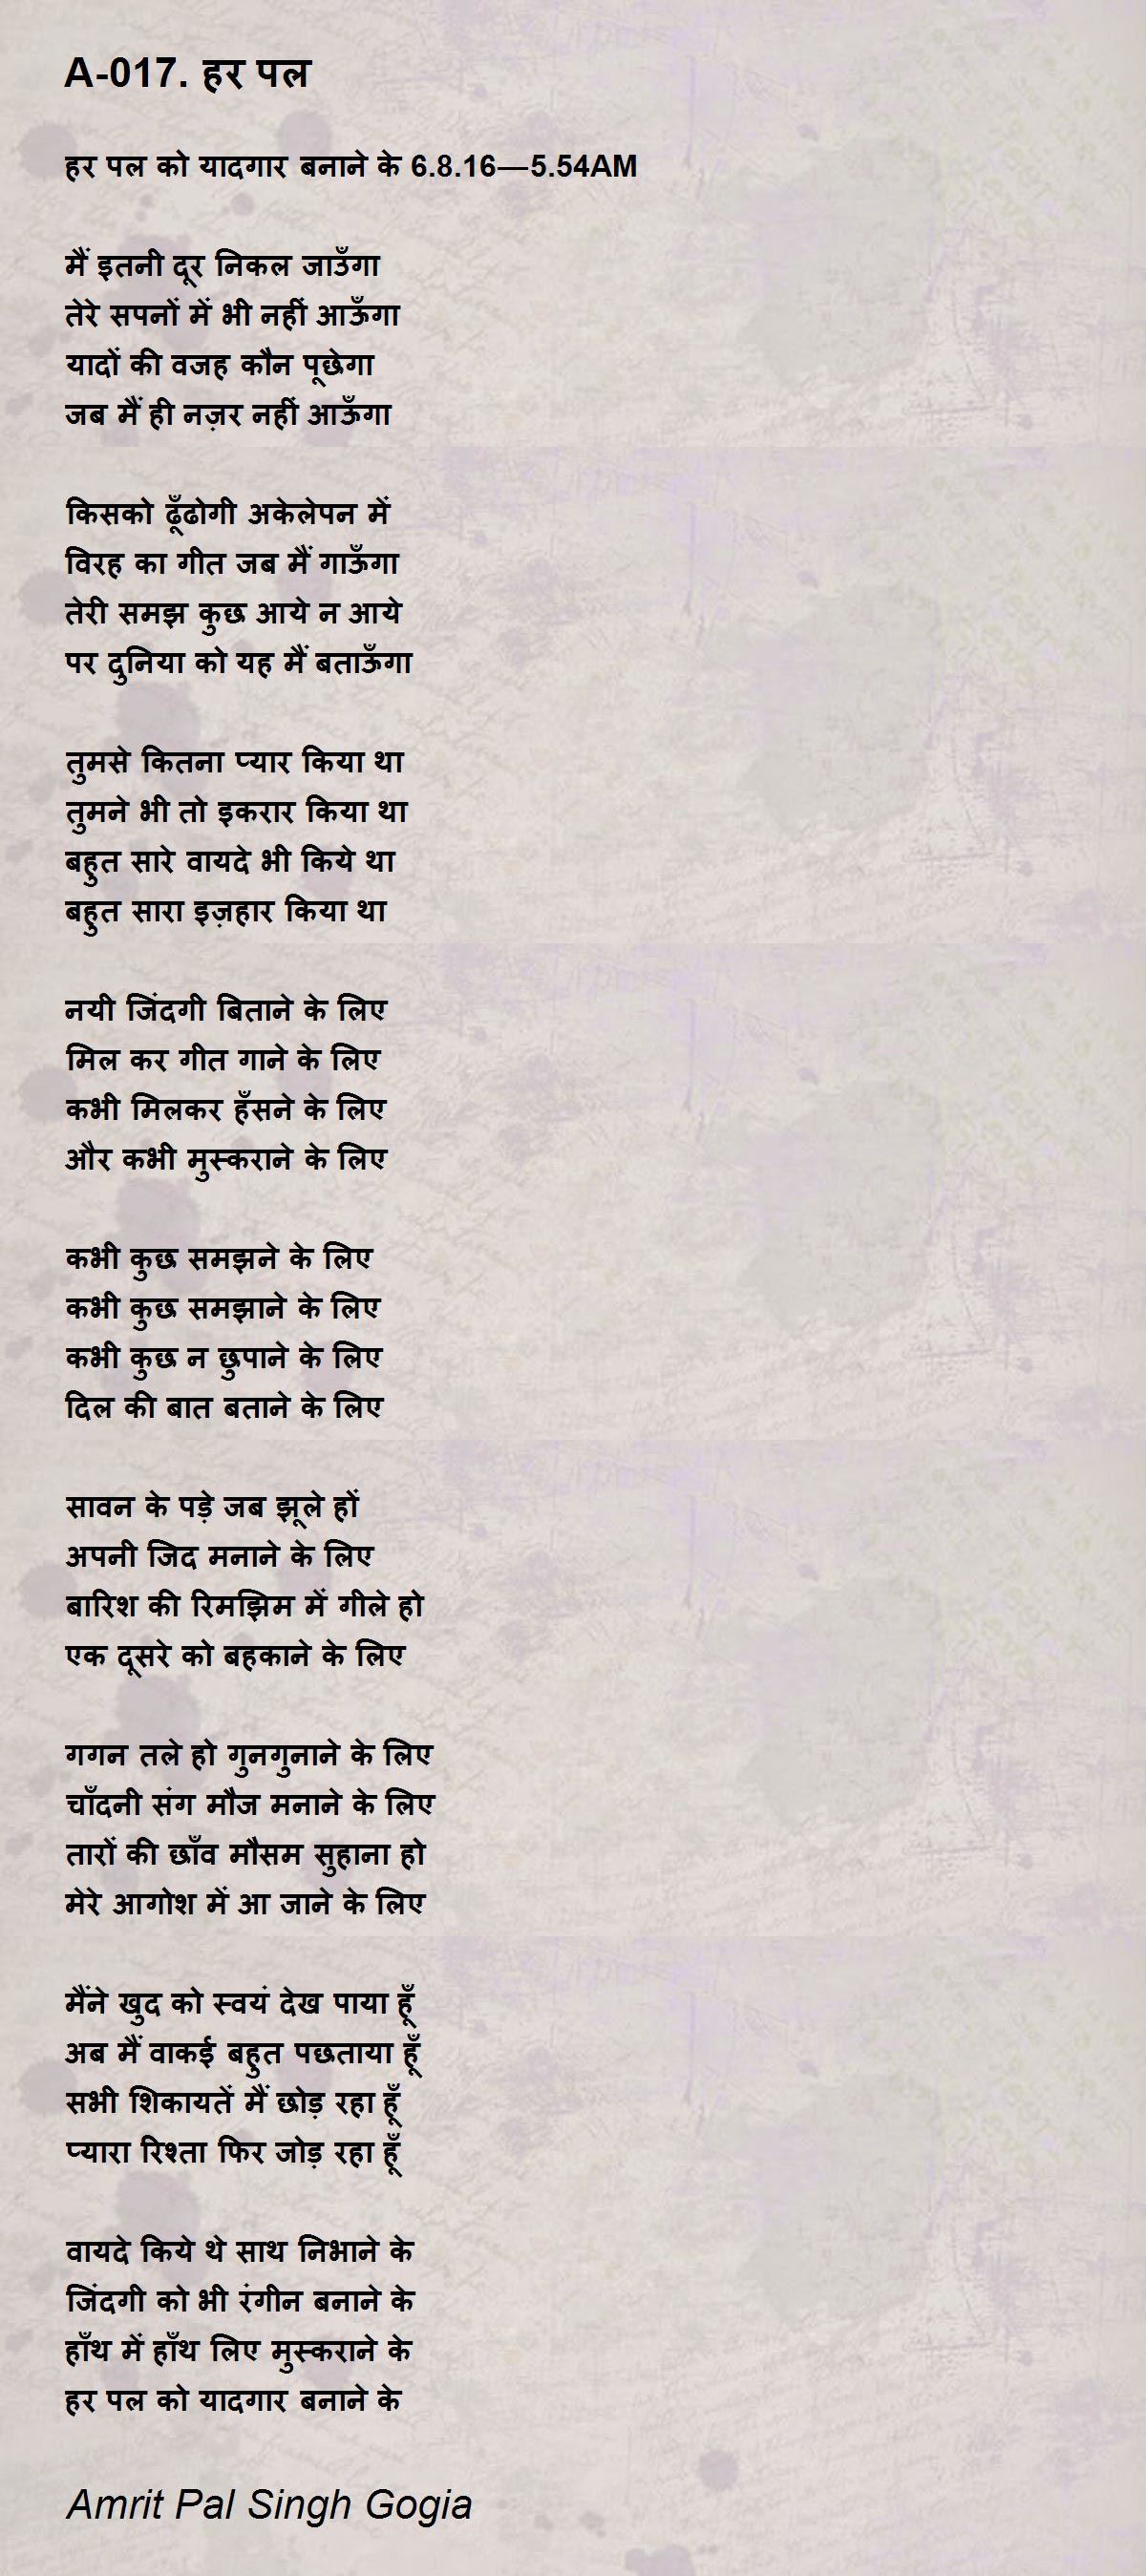 A-017. हर पल
हर पल को यादगार बनाने के 6.8.16—5.54AM
मैं इतनी दूर निकल जाउँगा
तेरे सपनों में भी नहीं आऊँगा
यादों की वजह कौन पूछेगा
जब मैं ही नज़र नहीं आऊँगा
किसको ढूँढोगी अकेलेपन में
विरह का गीत जब मैं गाऊँगा
तेरी समझ कुछ आये न आये
पर दुनिया को यह मैं बताऊँगा
तुमसे कितना प्यार किया था
तुमने भी तो इकरार किया था
बहुत सारे वायदे भी किये था
बहुत सारा इज़हार किया था
नयी जिंदगी बिताने के लिए
मिल कर गीत गाने के लिए
कभी मिलकर हँसने के लिए
और कभी मुस्कराने के लिए
कभी कुछ समझने के लिए
कभी कुछ समझाने के लिए
कभी कुछ न छुपाने के लिए
दिल की बात बताने के लिए
सावन के पड़े जब झूले हों
अपनी जिद मनाने के लिए
बारिश की रिमझिम में गीले हो
एक दूसरे को बहकाने के लिए
गगन तले हो गुनगुनाने के लिए
चाँदनी संग मौज मनाने के लिए
तारों की छाँव मौसम सुहाना हो
मेरे आगोश में आ जाने के लिए
मैंने खुद को स्वयं देख पाया हूँ
अब मैं वाकई बहुत पछताया हूँ
सभी शिकायतें मैं छोड़ रहा हूँ
प्यारा रिश्ता फिर जोड़ रहा हूँ
वायदे किये थे साथ निभाने के
जिंदगी को भी रंगीन बनाने के
हाँथ में हाँथ लिए मुस्कराने के
हर पल को यादगार बनाने के
Amrit Pal Singh Gogia